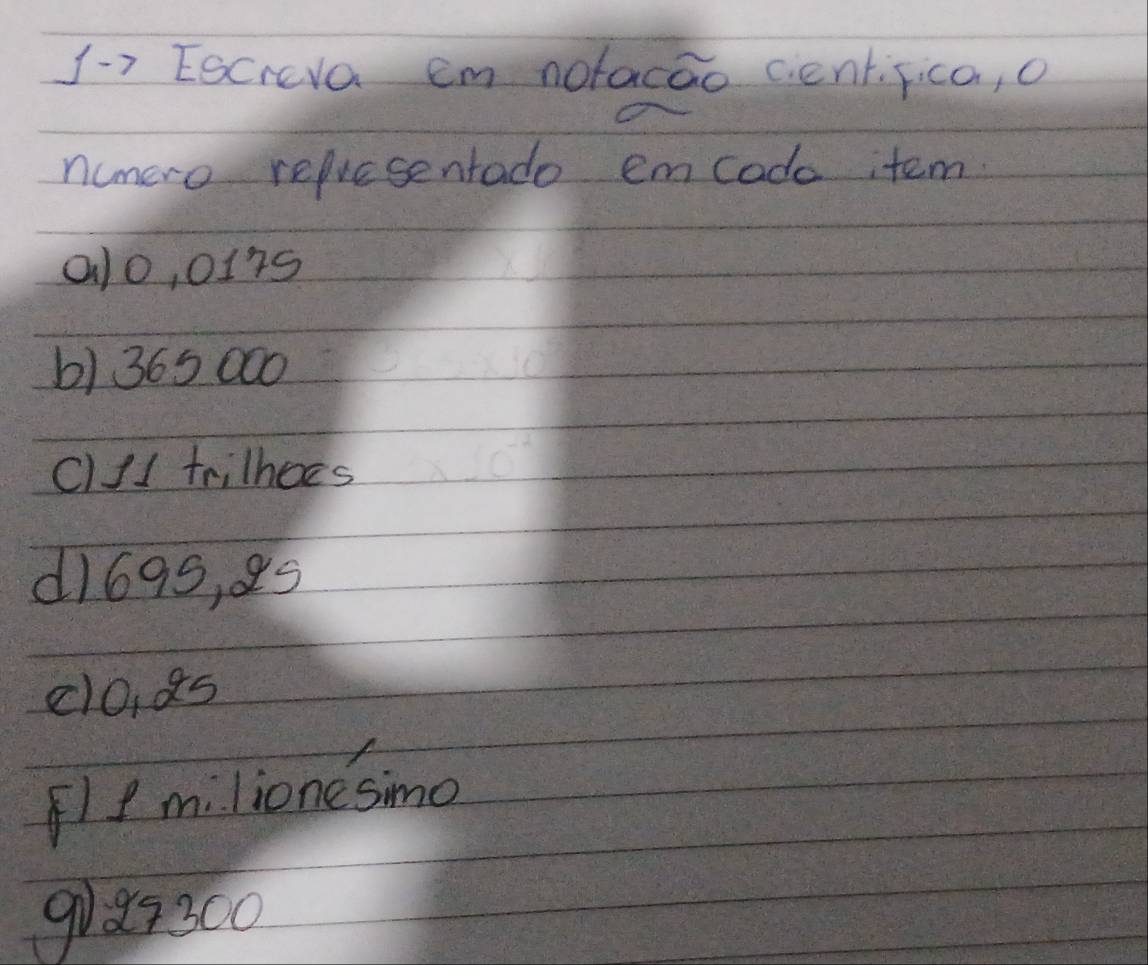 1-> Escreva em notacão cientifica, o
numero representado em cada item.
a) 0,0175
b) 365 000
c) 11 trilhoes
d) 695,25
e) 0,25
f) 1 milionésimo
g) 27300